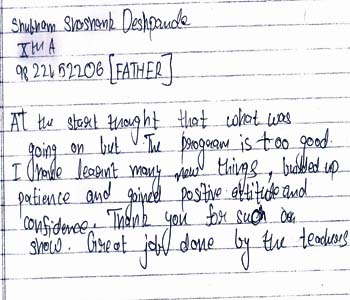 Shubham Shashank Deshpande
XIII A
9822452206 [FATHER]
At the start thought that what was
going on but The program is too good.
I have learnt many new things, builded up
patience and gained positive attitude and
confidence. Thank you for such an
show. Great job done by the teachers